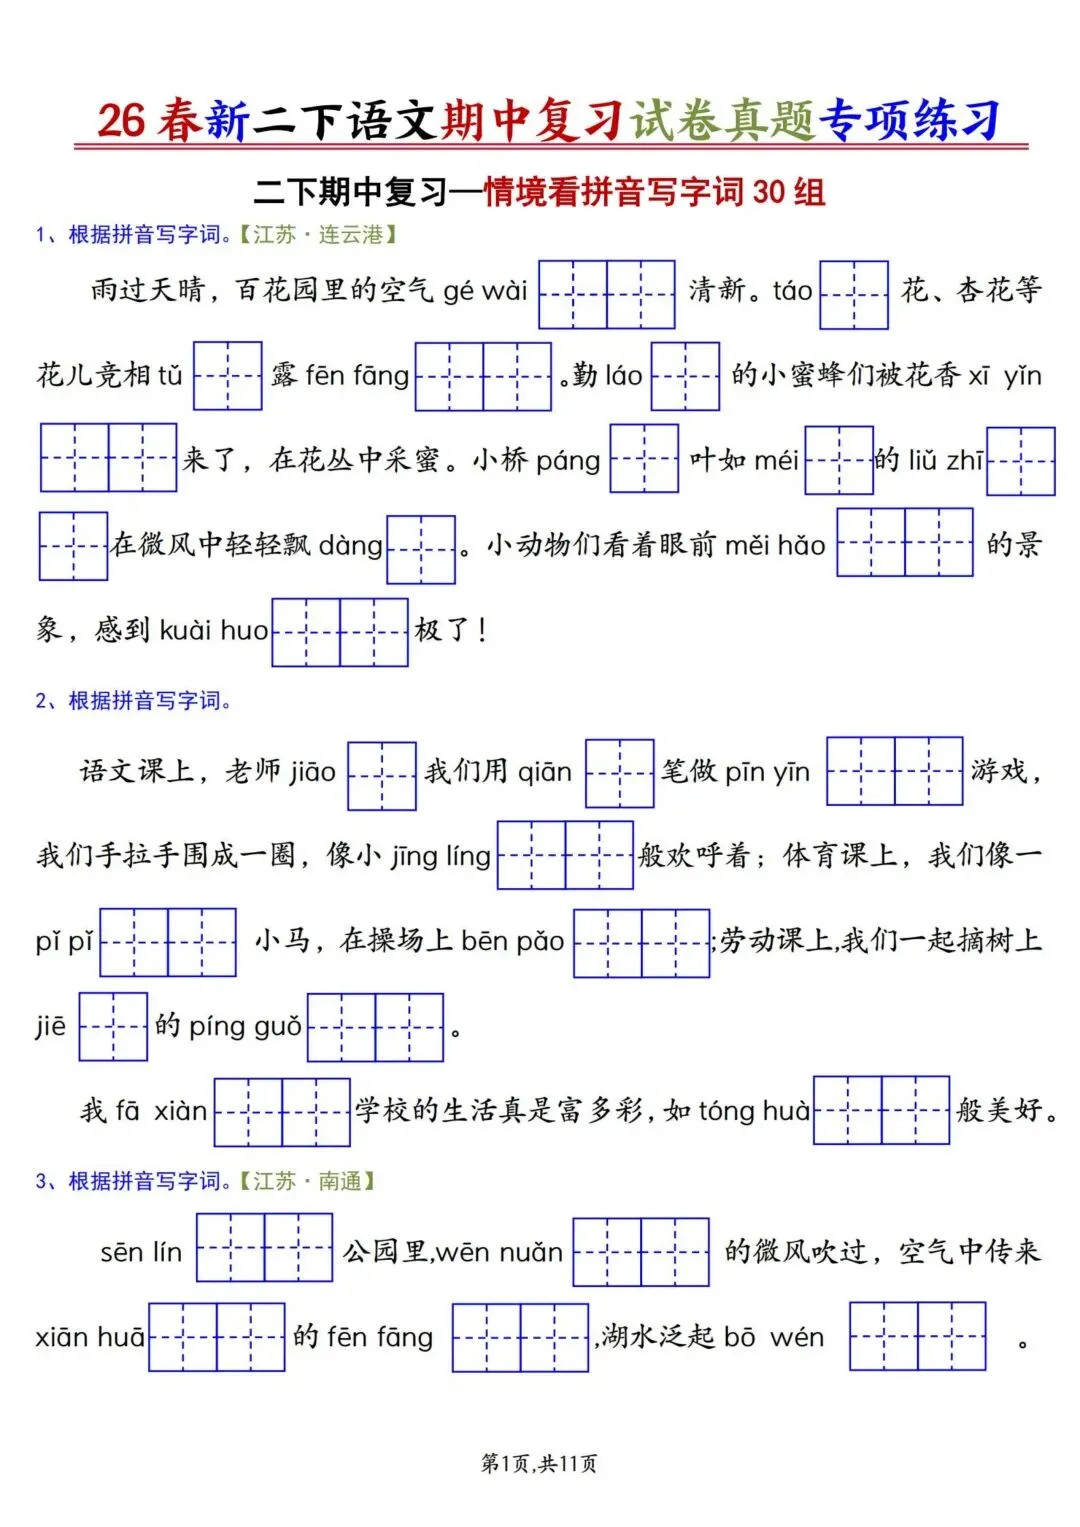 26春新二下语文期中复习试卷真题专项练习
二下期中复习—情境看拼音写字词30组
1、根据拼音写字词。【江苏·连云港】
雨过天晴，百花园里的空气 gé wài 清新。táo 花、杏花等
花儿竞相 tǔ 露 fēn fāng 。勤 láo 的小蜜蜂们被花香 xī yǐn
来了，在花丛中采蜜。小桥 páng 叶如 méi 的 liǔ zhī
在微风中轻轻飘 dàng 。小动物们看着眼前 měi hǎo 的景
象，感到 kuài huo 极了！
2、根据拼音写字词。
语文课上，老师 jiāo 我们用 qiān 笔做 pīn yīn 游戏，
我们手拉手围成一圈，像小 jīng líng 般欢呼着；体育课上，我们像一
pǐ pǐ 小马，在操场上 bēn pǎo ;劳动课上,我们一起摘树上
jiē 的 píng guǒ 。
我 fā xiàn 学校的生活真是富多彩，如 tóng huà 般美好。
3、根据拼音写字词。【江苏·南通】
sēn lín 公园里,wēn nuǎn 的微风吹过，空气中传来
xiān huā 的 fēn fāng ,湖水泛起 bō wén 。
第1页,共11页